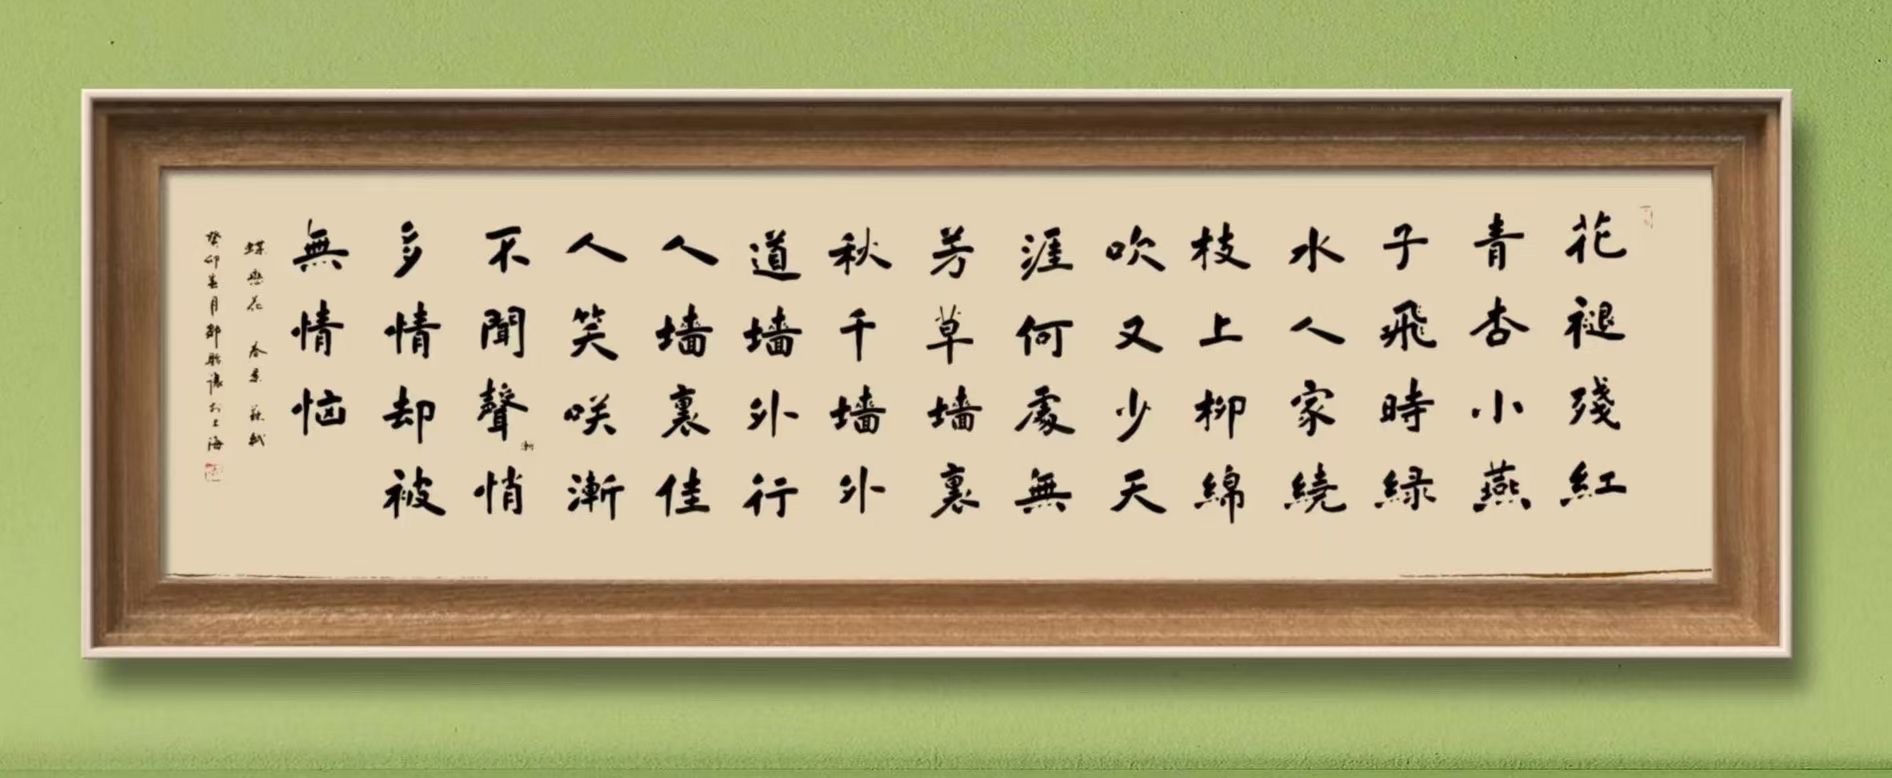 花褪殘紅
青杏小燕
子飛時緑
水人家繞
枝上柳綿
吹又少天
涯何處無
芳草墙裏
秋千墙外
道墙外行
人墙裏佳
人笑咲漸
不聞聲悄
多情却被
無情恼
蝶戀花 春景 蘇軾
癸卯春月邵於上海